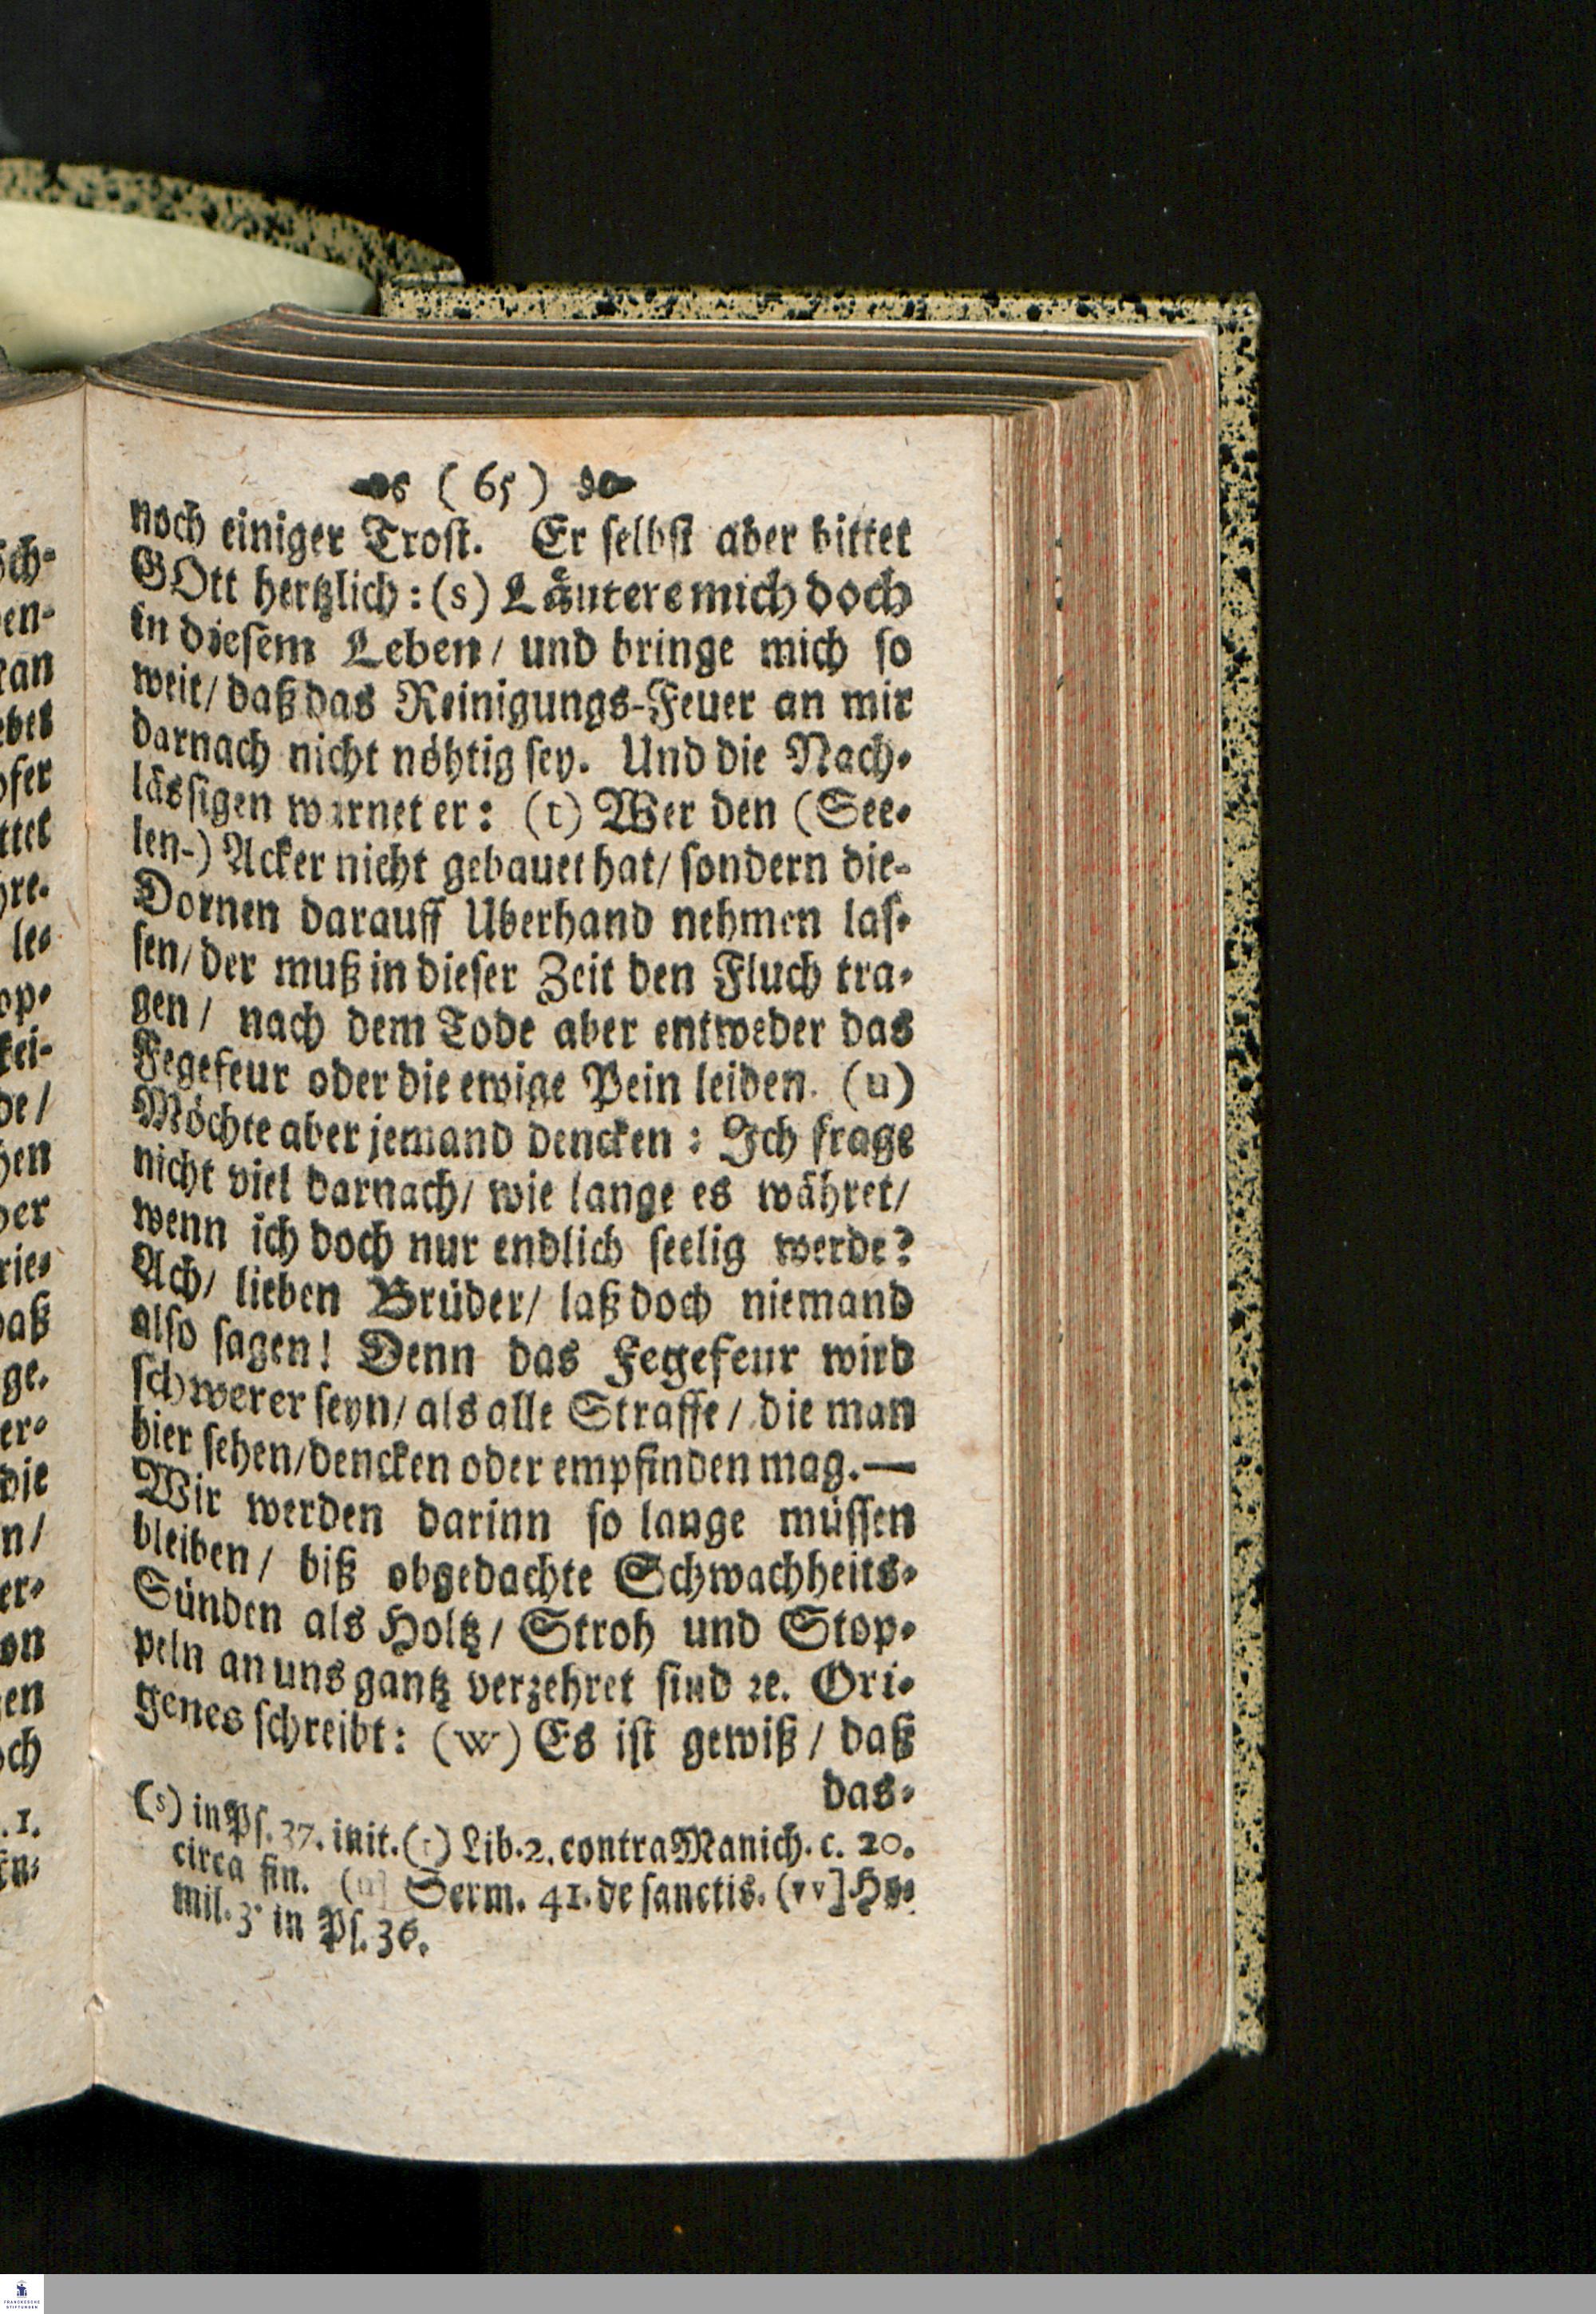 ( 65 )
noch einiger Trost. Er selbst aber bittet
GOtt hertzlich: (s) Läutere mich doch
in diesem Leben / und bringe mich so
weit / daß das Reinigungs-Feuer an mir
darnach nicht nöhtig sey. Und die Nach-
lässigen warnet er: (t) Wer den (See-
len-) Acker nicht gebauet hat / sondern die-
Dornen darauff Uberhand nehmen las-
sen / der muß in dieser Zeit den Fluch tra-
gen / nach dem Tode aber entweder das
Fegefeur oder die ewige Pein leiden. (u)
Möchte aber jemand dencken: Ich frage
nicht viel darnach / wie lange es währet /
wenn ich doch nur endlich seelig werde?
Ach / lieben Brüder / laß doch niemand
also sagen! Denn das Fegefeur wird
schwerer seyn / als alle Straffe / die man
hier sehen / dencken oder empfinden mag.—
Wir werden darinn so lange müssen
bleiben / biß obgedachte Schwachheits-
Sünden als Holtz / Stroh und Stop-
peln an uns gantz verzehret sind ꝛc. Ori-
genes schreibt: (w) Es ist gewiß / daß
das-
(s) in Ps. 37. init. (t) Lib. 2. contra Manich. c. 20.
circa fin. (u] Serm. 41. de sanctis. (vv] Ho-
mil. 3. in Ps. 36.
öch-
en-
ofer
ttet
hre-
le-
op-
kei-
de /
hen
ber
rie-
daß
ge-
er-
die
n /
er-
on
en
och
. 1.
FRANCKESCHE
STIFTUNGEN